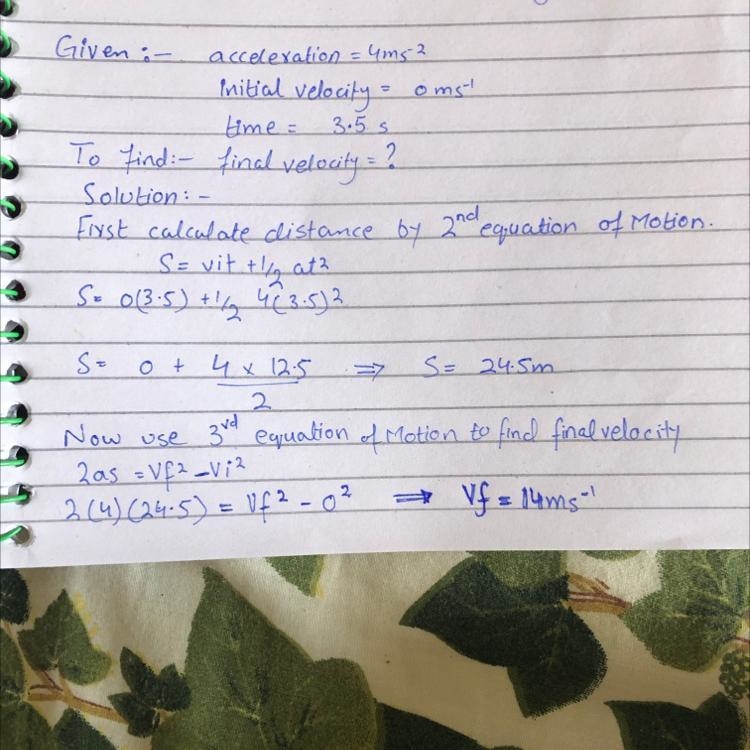 Given :- acceleration = 4ms-2
Initial velocity = 0 ms-1
time = 3.5 s
To find:- final velocity = ?
Solution: -
First calculate distance by 2nd equation of Motion.
S= vit +1/2 at2
S= 0(3.5) +1/2 4(3.5)2
S= 0 + 4 x 12.5 / 2 ⇒ S= 24.5m
Now use 3rd equation of Motion to find final velocity
2as = Vf2 - Vi2
2(4)(24.5) = Vf2 - 02 ⇒ Vf = 14ms-1